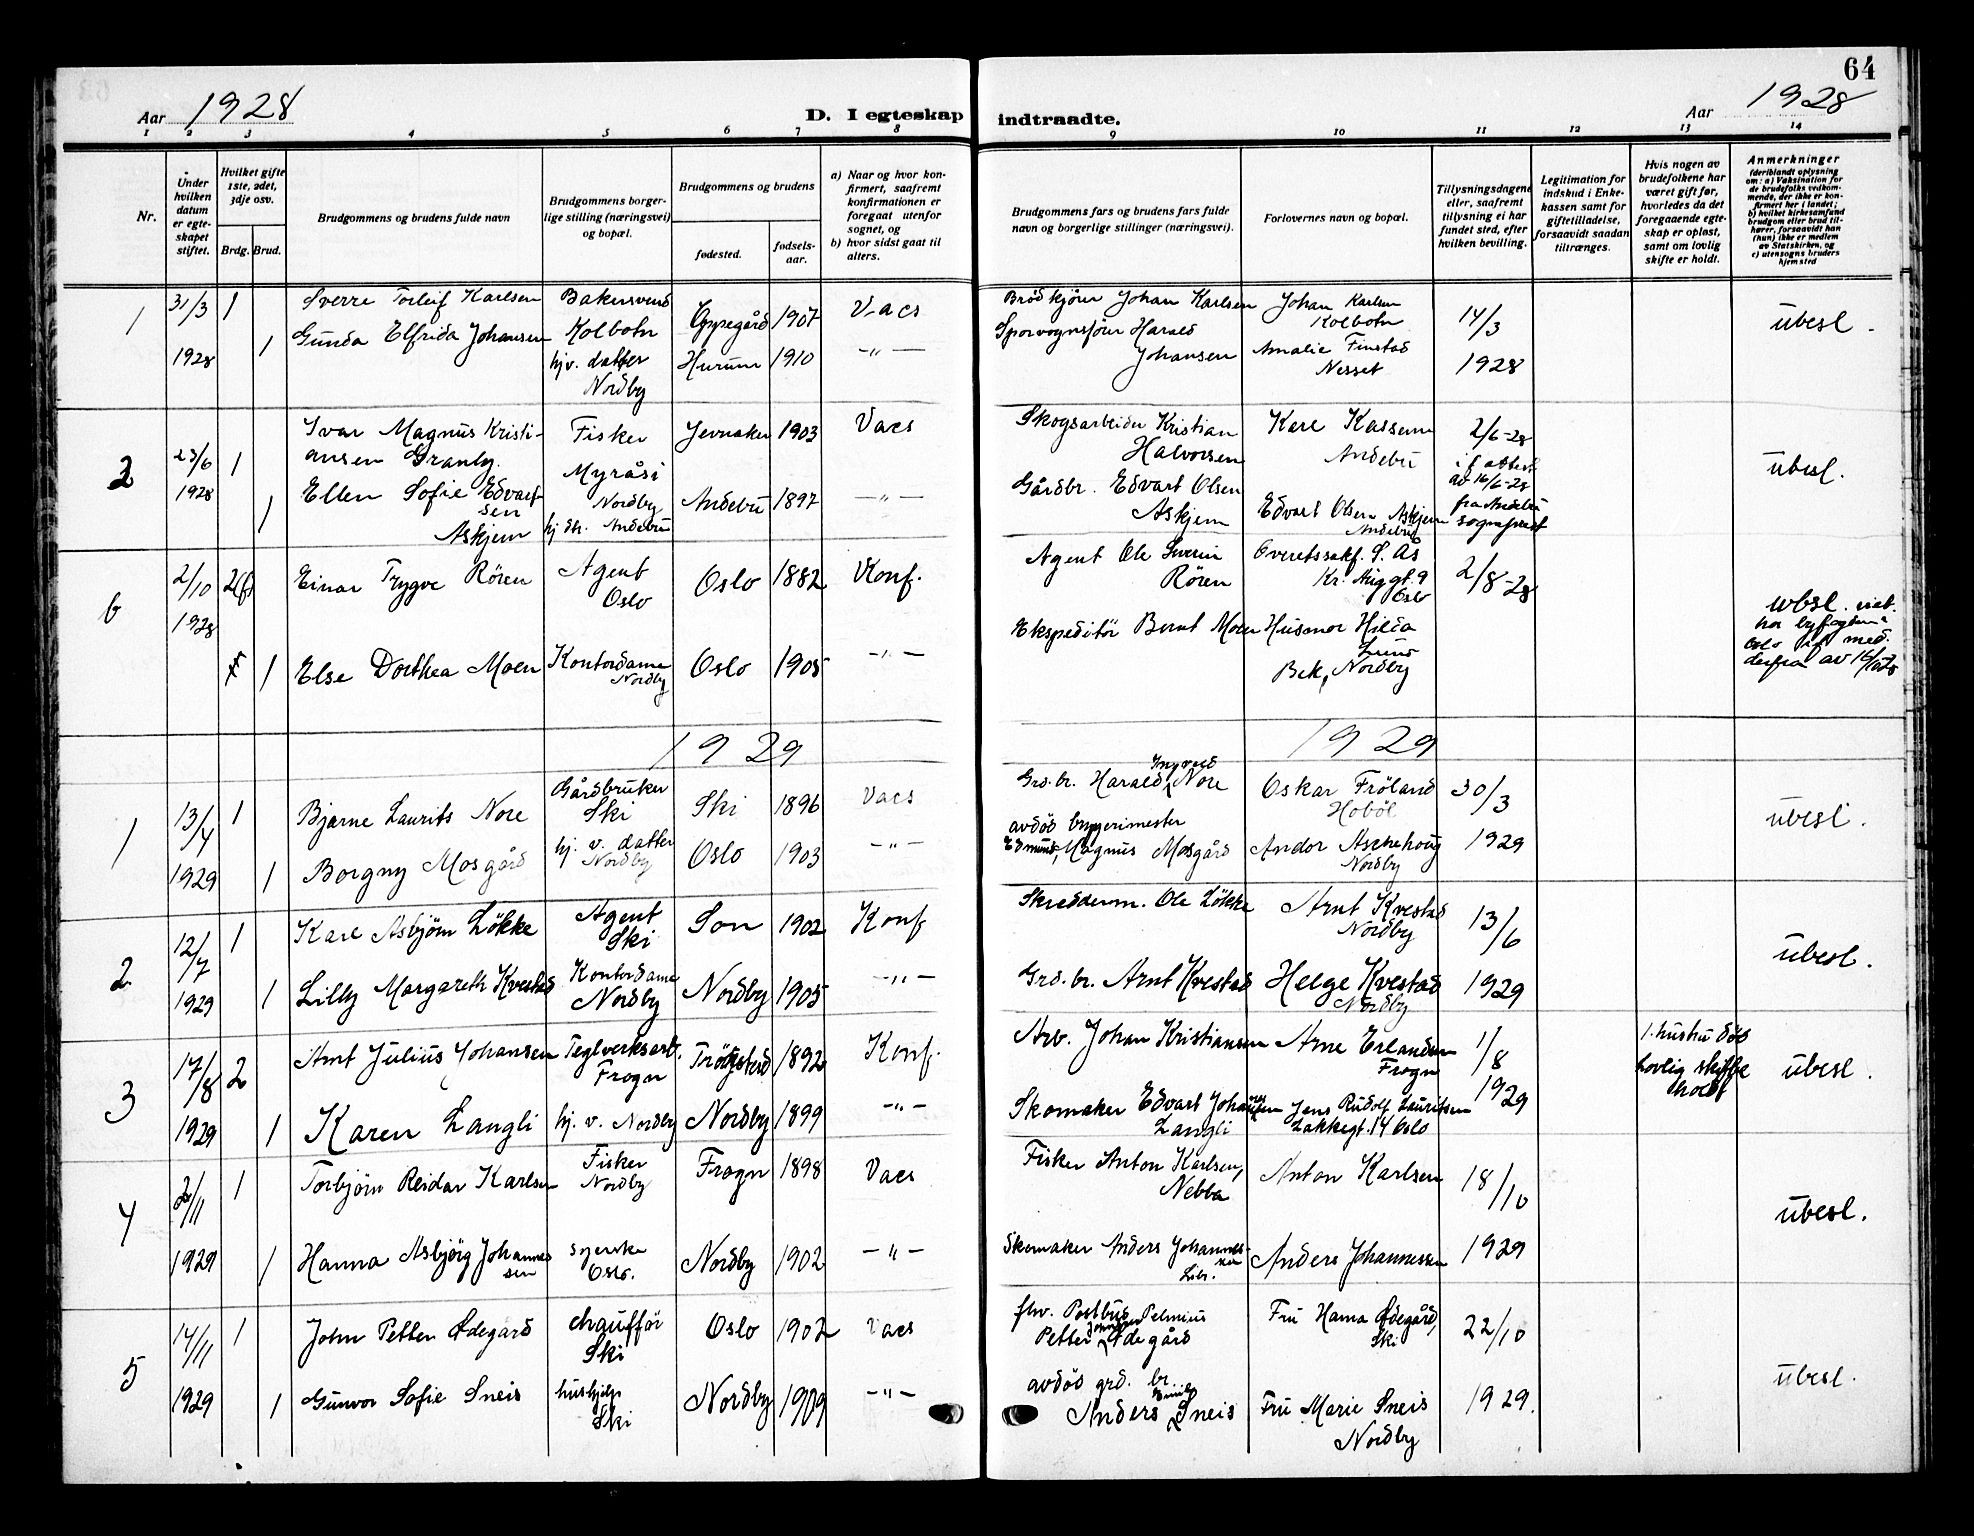 64
Aar 1928
D. I egteskap indtraadte.
Aar 1928
1 2 3 4 5 6 7 8 9 10 11 12 13 14
Nr.
Under hvilken datum er egteskapet stiftet.
Hvilket gifte 1ste, 2det, 3dje osv.
Brdg. Brud.
Brudgommens og brudens fulde navn
Brudgommens borgerlige stilling (næringsvei) og bopæl.
Brudgommens og brudens
fødested.
fødselsaar.
a) Naar og hvor konfirmert, saafremt konfirmationen er foregaat utenfor sognet, og
b) hvor sidst gaat til alters.
Brudgommens fars og brudens fars fulde navn og borgerlige stillinger (næringsvei).
Forlovernes navn og bopæl.
Tillysningsdagene eller, saafremt tillysning ei har fundet sted, efter hvilken bevilling.
Legitimation for indskud i Enkekassen samt for giftetilladelse, forsaavidt saadan tiltrænges.
Hvis nogen av brudefolkene har været gift før, hvorledes da det foregaaende egteskap er opløst, samt om lovlig skifte er holdt.
Anmerkninger
(deriblandt oplysning om: a) Vaksination for de brudefolks vedkommende, der ikke er konfirmert her i landet;
b) hvilket kirkesamfund brudgom eller brud tilhører, forsaavidt han (hun) ikke er medlem av Statskirken, og
c) utensogns bruders hjemsted
1 31/3 1928 1 Sverre Torleif Karlsen Bakersvend Kolbotn Oppegård 1907 Vacs
Brödkjörer Johan Karlsen Johan Karlsen Kolbotn 14/3 1928 ubesl.
1 Gunda Elfrida Johansen hjv. datter Nordby Hurum 1910 -"-
Sporvognsförer Harald Johansen Amalie Finstad Nesset
2 23/6 1928 1 Ivar Magnus Kristiansen Granly. Fisker Myråsi Nordby Jevnaker 1903 Vacs
Skogsarbeider Kristian Halvorsen Andebu 2/6-28 ubesl.
1 Ellen Sofie Edvardsen Askjem hj dtr. Andebu Andebu 1897 -"-
Gårdbr. Edvart Olsen Askjem Edvart Olsen Askjem Andebu av 16/6-28 fra Andebu
6 2/10 1928 2(f) Einar Trygve Rören Agent Oslo Oslo 1882 Konf.
Agent Ole Rören Overetssakf. S. Ås Kr. Aug gt. 9 Oslo 2/8-28
1 Else Dorthea Moen Kontordame Nordby Oslo 1905 -"-
Ekspeditör Bernt Moen Husmor Hilda Lund Bek, Nordby
ubesl. viet. hos byfogden i Oslo
1929 1929
1 13/4 1929 1 Bjarne Laurits Nore Gårdbruker Ski Ski 1896 Vacs
Grd. br. Harald Ingvald Nore Oskar Fröland Hobøl 30/3 1929 ubesl.
1 Borgny Mosgård hj. v. datter Nordby Oslo 1903 -"-
avdöd byggmester Edmund Magnus Mosgård Andor Aschehoug Nordby
2 12/7 1929 1 Kare Asbjörn Lökke Agent Ski Son 1902 Konf
Skredderm. Ole Lökke Arnt Kvestad Nordby 13/6 1929 ubesl.
1 Lilly Margareth Kvestad Kontordame Nordby Nordby 1905 -"-
Grd. br. Arnt Kvestad Helge Kvestad Nordby
3 17/8 1929 2 Arnt Julius Johansen Teglverksarb. Frogn Trögstad 1892 Konf.
Arb. Johan Kristiansen Arne Erlandsen Frogn 1/8 1929 1. hustru död lovlig skifte holdt ubesl.
1 Karen Langli hj. v. Nordby Nordby 1899 -"-
Skomaker Edvart Langli Jens Rudolf Lauritsen Lakkegt. 14 Oslo
4 2/11 1929 1 Torbjörn Reidar Karlsen Fisker Nordby Frogn 1898 Vacs
Fisker Anton Karlsen, Nebba Anton Karlsen 18/10 1929 ubesl.
1 Hanna Asbjörg Johannessen syerske Oslo. Nordby 1902 -"-
Skomaker Anders Johannessen Anders Johannessen
5 14/11 1929 1 John Petter Ødegård chaufför Ski Oslo 1902 Vacs
Petter Ødegård Fru Hanna Ødegård, Ski 22/10 1929. ubesl.
1 Gunvor Sofie Sneis hushjelp Ski Nordby 1909 -"-
avdöd grd. br. Anders Emil Sneis Fru Marie Sneis Nordby